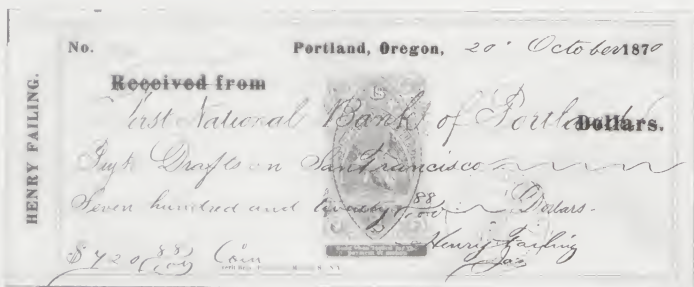 HENRY FAILING.
No. Portland, Oregon, 20 October 1870
Received from
First National Bank of Portland Dollars.
Drafts on San Francisco
Seven hundred and twenty 88/100 Dollars.
Henry Failing
$720 88/100 Coin